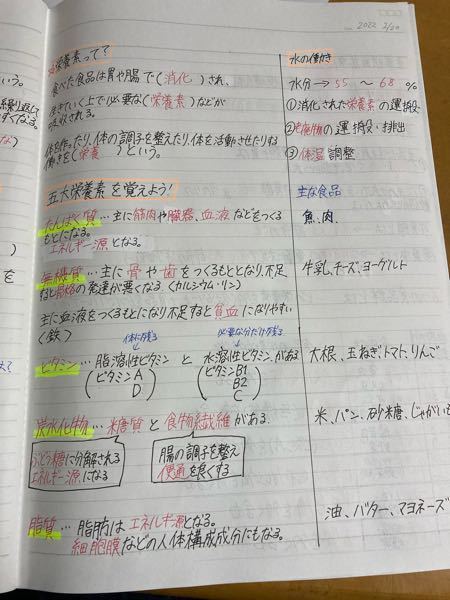 栄養素って?
食べた食品は胃や腸で(消化)され、
生きていく上で必要な(栄養素)などが
吸収される。
体を作ったり、体の調子を整えたり、体を活動させたりする
働きを(栄養)という。
五大栄養素を覚えよう!
たんぱく質…主に筋肉や臓器、血液などをつくる
もとになる。
エネルギー源となる。
無機質…主に骨や歯をつくるもととなり、不足
すると の発達が悪くなる(カルシウム・リン)
主に血液をつくるもとになり不足すると貧血になりやすい
(鉄)
体に残る
必要な分だけ残る
ビタミン…脂溶性ビタミンと水溶性ビタミンがある
(ビタミンA
D)
(ビタミンB1
B2
C)
炭水化物…糖質と食物繊維がある.
ぶどう糖に分解される
エネルギー源になる
腸の調子を整え
便通を良くする
脂質…脂肪はエネルギー源となる。
細胞膜などの人体構成成分にもなる。
2022 2/20
水の働き
水分→55~68%
①消化された栄養素の運搬
②老廃物の運搬・排出
③体温調整
主な食品
魚、肉、
牛乳、チーズ、ヨーグルト
大根、玉ねぎ、トマト、りんご
米、パン、砂糖、じゃがいも
油、バター、マヨネーズ